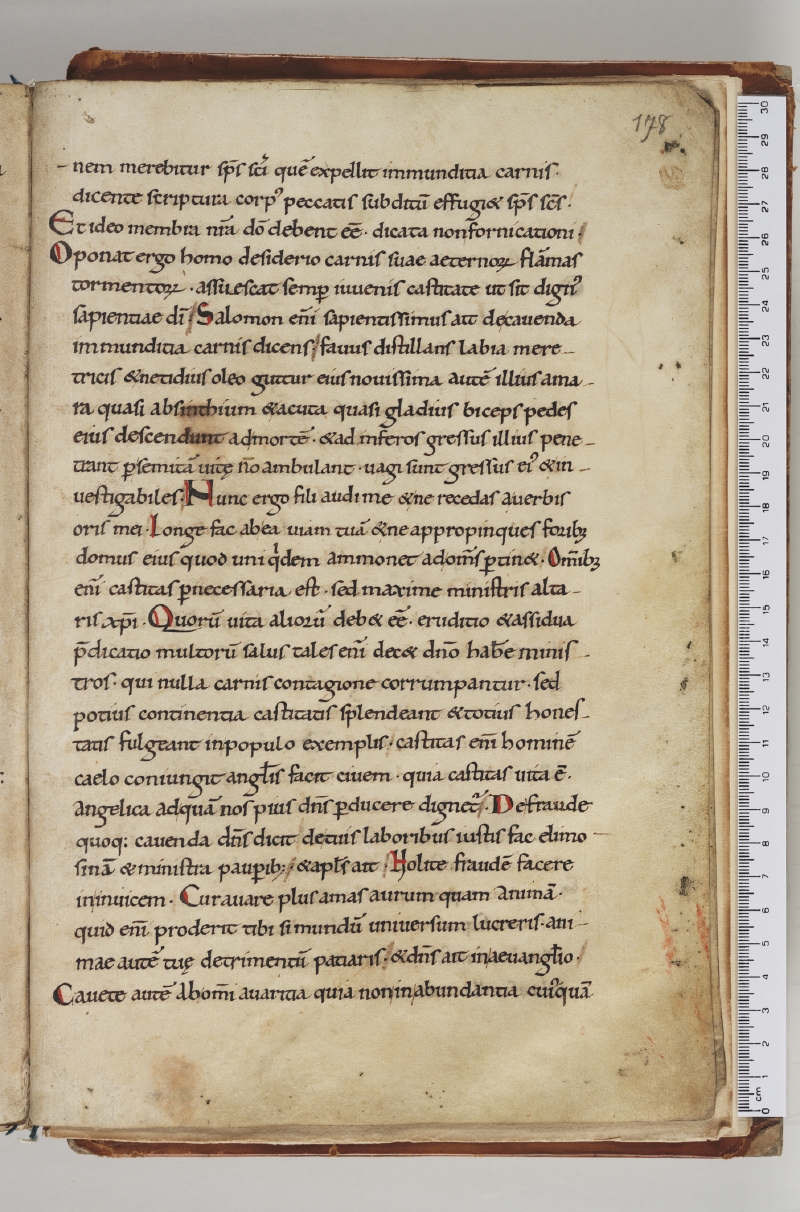 178
nem merebitur sp̄s sc̄i quē expellit immunditia carnis·
dicente scriptura corp᾽ peccatis subditū effugi& sp̄s sc̄s·
Et ideo membra nr̄a dō debent eē· dicata non fornicationi
Oponat ergo homo desiderio carnis suae aeternoꝝ flāmas
tormentoꝝ· assuescat semp̱ iuuenis castitate ut sit dign᾽
sapientiae dī· Salomon eni̅ sapientissimus ait de cauenda
immunditia carnis dicens· fauus distillans labia mere-
tricis & netidius oleo guttur eius nouissima autē illius ama-
ra quasi absinthium & acuta quasi gladius biceps pedes
eius descendunt ad mortē· & ad inferos gressus illius pene-
trant ꝑ semitā uitę n̄o ambulant· uagi sunt gressus ei᾽ & in-
uestigabiles· Nunc ergo fili audi me & ne recedas a uerbis
oris mei· Longe fac ab ea uiam tuā & ne appropinques forib;
domus eius quod uni q͛dem ammonet ad om̄s ꝑtin&· Om̄ib;
eni̅ castitas ꝑnecessaria est· sed maxime ministris alta-
ris xp̄i· Quorū uita aliorū deb& eē· eruditio & assidua
p̄dicatio multorū salus tales eni̅ dec& dn̄o hab̄e minis-
tros· qui nulla carnis contagione corrumpantur· sed
potius continentia castitatis splendeant & totius hones-
tatis fulgeant in populo exemplis· castitas eni̅ hominē
caelo coniungit angl̄is facit ciuem· quia castitas uita ē·
angelica ad quā nos pius dn̄s ꝑducere dignet᷑· De fraude
quoq: cauenda dn̄s dicit de tuis laboribus iustis fac elimo-
sinā & ministra pauꝑib;· & apl̄s ait· Nolite fraudē facere
in inuicem· Cur auare plus amas aurum quam animā·
quid eni̅ proderit tibi si mundū uniuersum lucreris· ani-
mae autē tuę detrimentū patiaris· & dn̄s ait in aeuangl̄io·
Cauete autē ab om̄i auaritia quia non in abundantia cui᾽quā
30
29
28
27
26
25
24
23
22
21
20
19
18
17
16
15
14
13
12
11
10
9
8
7
6
5
4
3
2
1
cm
0